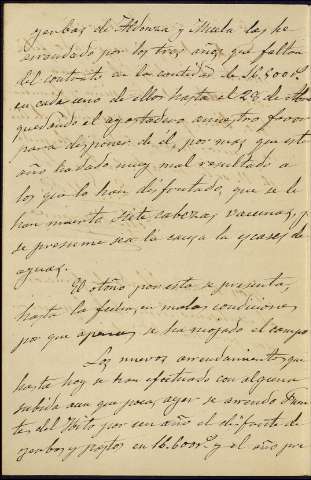 yerbas de Aldonza y Meala las he
arrendado por los tres años que faltan
del contrato en la cantidad de 16.500 rs
en cada uno de ellos hasta el 28 de
quedando el agostadero a nuestro favor
para disponer de él, por mas que este
año ha dado muy mal resultado a
los que lo han disfrutado, que se le
han muerto siete cabezas vacunas, y
se presume sea la causa la escasez de
aguas.
El otoño por esto se presenta,
hasta la fecha, en malas condiciones
por que apenas se ha mojado el campo
Los nuevos arrendamientos que
hasta hoy se han efectuado con alguna
subida aun que poca, ayer se arrendó
te del Hito por un año el de
yerbas y pastos en 16.600 rs y el año que